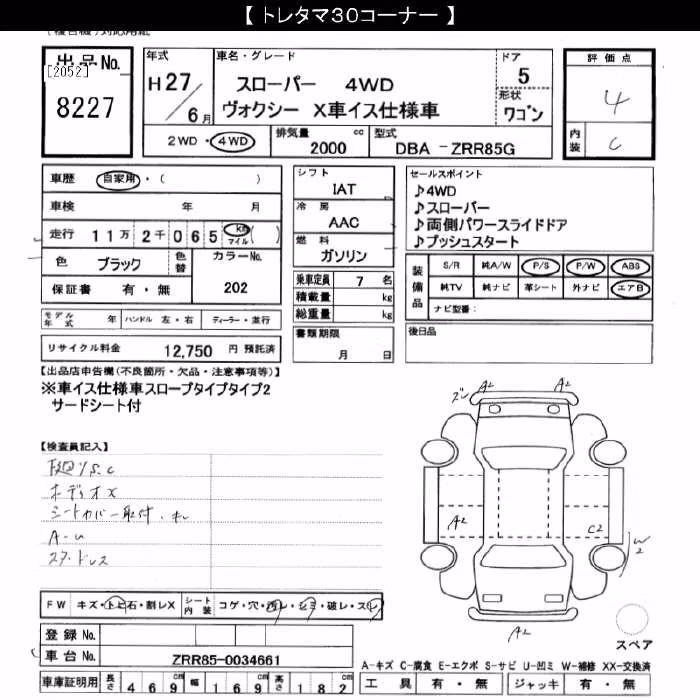 【 トレタマ30コーナー 】
出品No.
[2052]
8227
年式
H27/6月
車名・グレード
スローパー 4WD
ヴォクシー X車イス仕様車
ドア
5
形状
ワゴン
2WD・4WD
排気量
2000 cc
型式
DBA -ZRR85G
評価点
4
内装
C
車歴 自家用・( )
車検 年 月
走行 11万 2千 065 km マイル( )
色 ブラック
色替
カラーNo.
202
保証書 有・無
モデル年式 年
ハンドル 左・右
ディーラー・並行
リサイクル料金 12,750 円 預託済
シフト
IAT
冷房
AAC
燃料
ガソリン
乗車定員 7 名
積載量 kg
総重量 kg
書類期限
月 日
セールスポイント
♪4WD
♪スローパー
♪両側パワースライドドア
♪プッシュスタート
装備品
S/R 純A/W P/S P/W ABS
純TV 純ナビ 革シート 外ナビ エアB
ナビ型番:
後日品
【出品店申告欄(不良箇所・欠品・注意事項等)】
※車イス仕様車スロープタイプタイプ2
サードシート付
【検査員記入】
下廻りS.C
ボディオX
シートカバー取付・キレ
A-U
スタッドレス
A2 A2
A2
C2
W2
A2
スペア
FW キズ・トビ石・割レX
シート内装 コゲ・穴・汚レ・シミ・破レ・スレ
登録No.
車台No. ZRR85-0034661
車庫証明用 長さ 469cm 幅 169cm 高さ 182cm
A-キズ C-腐食 E-エクボ S-サビ U-凹ミ W-補修 XX-交換済
工具 有・無 ジャッキ 有・無